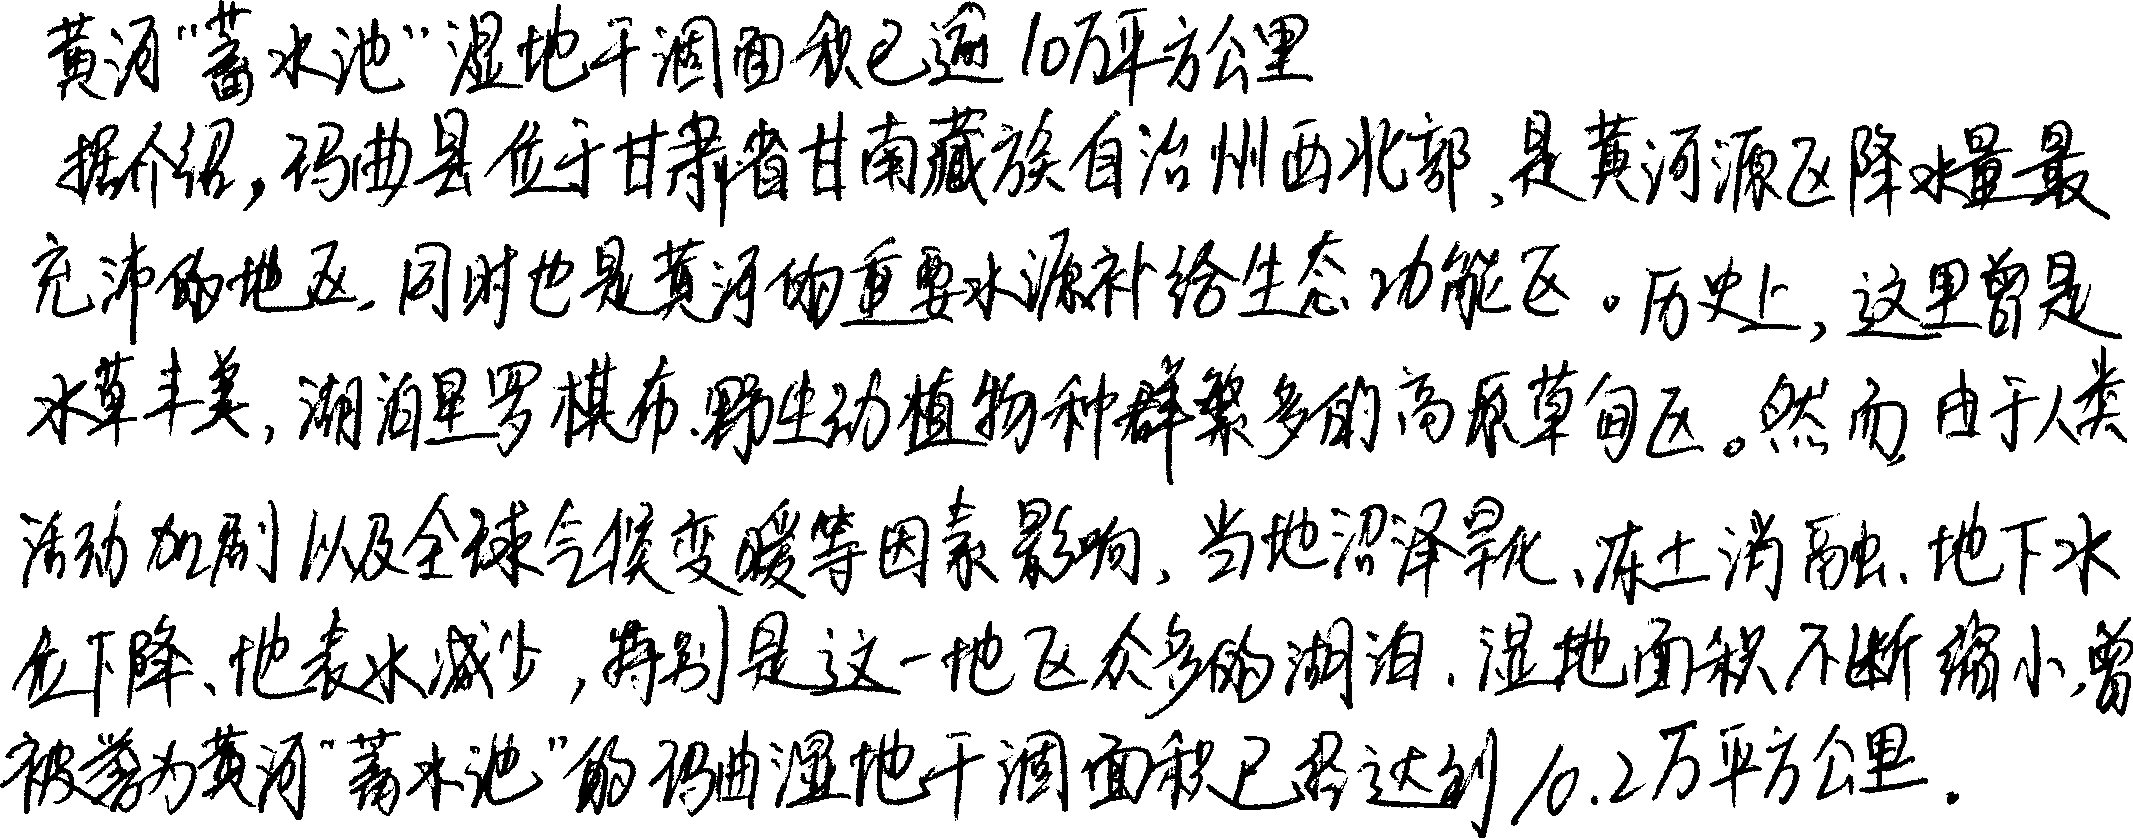 黄河“蓄水池”湿地干涸面积已逾10万平方公里
据介绍,玛曲县位于甘肃省甘南藏族自治州西北部、是黄河源区降水量最
充沛的地区,同时也是黄河的重要水源补给生态功能区。历史上,这里曾是
水草丰美,湖泊星罗棋布、野生动植物种群繁多的高原草甸区。然而由于人类
活动加剧以及全球气候变暖等因素影响、当地沼泽旱化、冻土消融、地下水
位下降、地表水减少,特别是这一地区众多的湖泊、湿地面积不断缩小,曾
被誉为黄河“蓄水池”的玛曲湿地干涸面积已经达到10.2万平方公里.